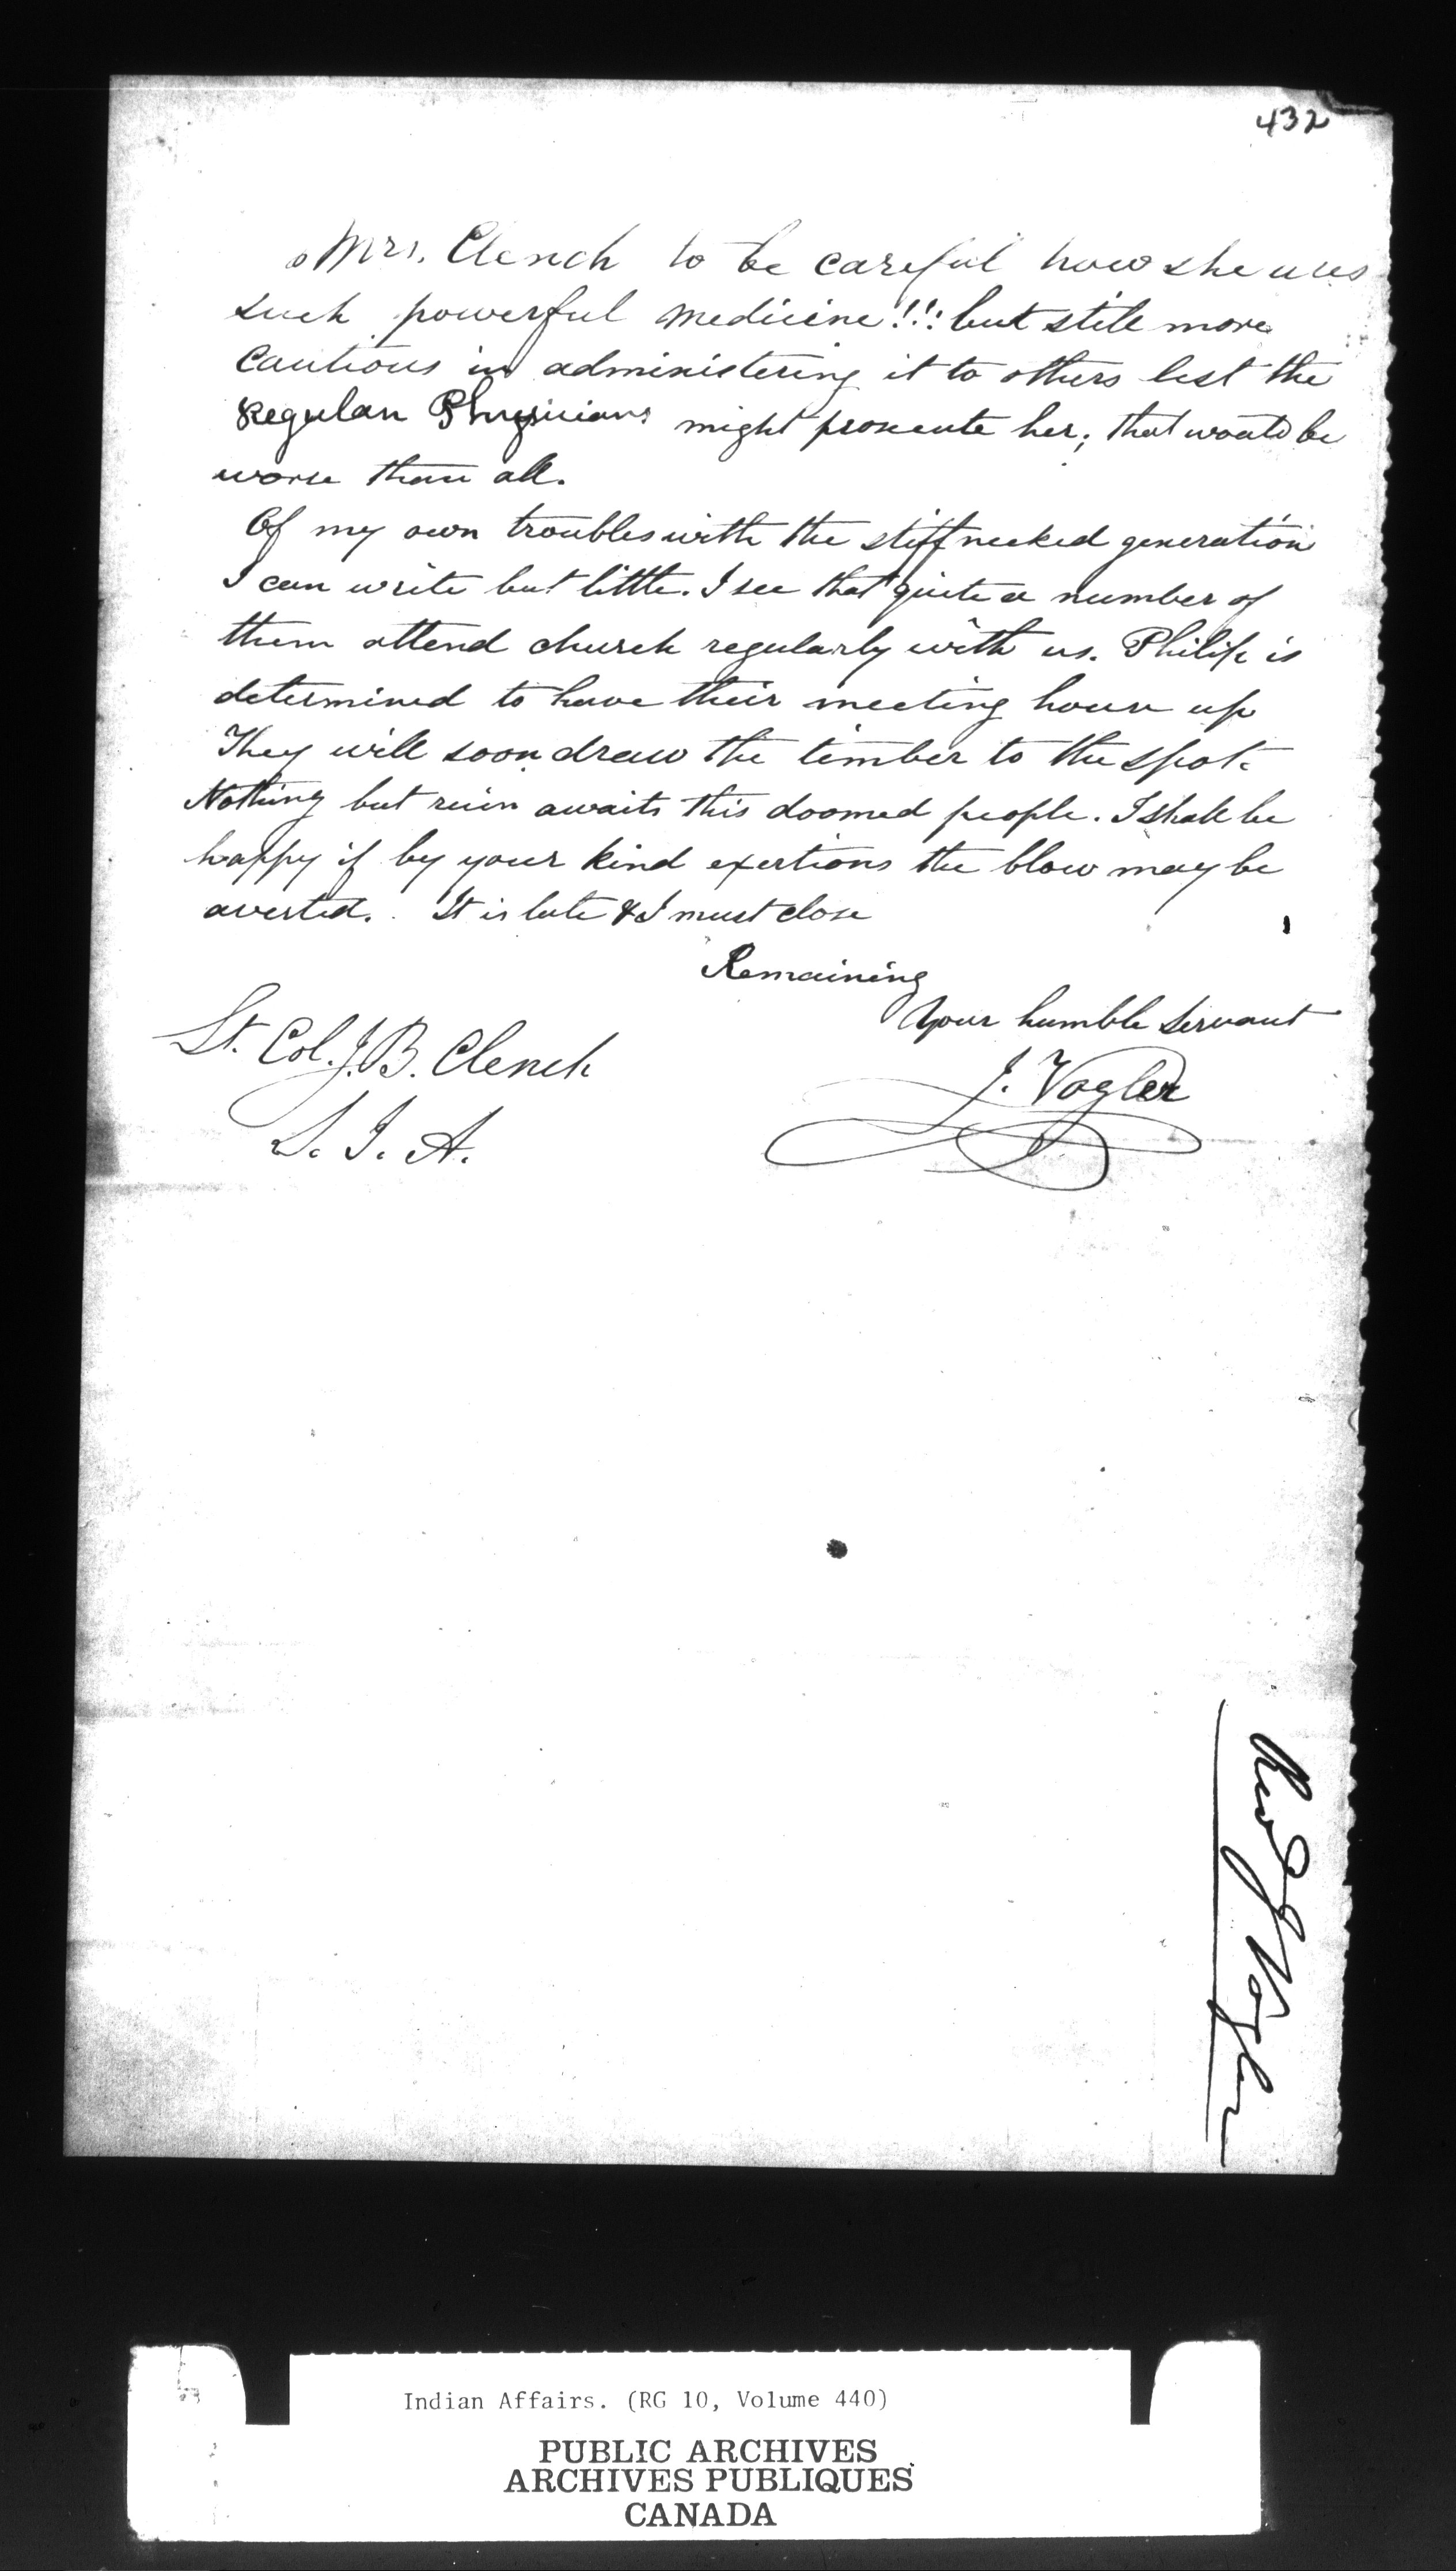 432
Mrs. Clench to be careful how she uses
such powerful medicine!!! but still more
Cautious in administering it to others lest the
Regular Physicians might prosecute her; that would be
worse than all.
Of my own troubles with the stiffnecked generation
I can write but little. I see that quite a number of
them attend church regularly with us. Philip is
determined to have their meeting house up
They will soon draw the timber to the spot.
Nothing but ruin awaits this doomed people. I shall be
happy if by your kind exertions the blow may be
averted. It is late & I must close
Remaining
Your humble servant
J. Vogler
Lt. Col. J. B. Clench
S. I. A.
Rev J Vogler
Indian Affairs. (RG 10, Volume 440)
PUBLIC ARCHIVES
ARCHIVES PUBLIQUES
CANADA